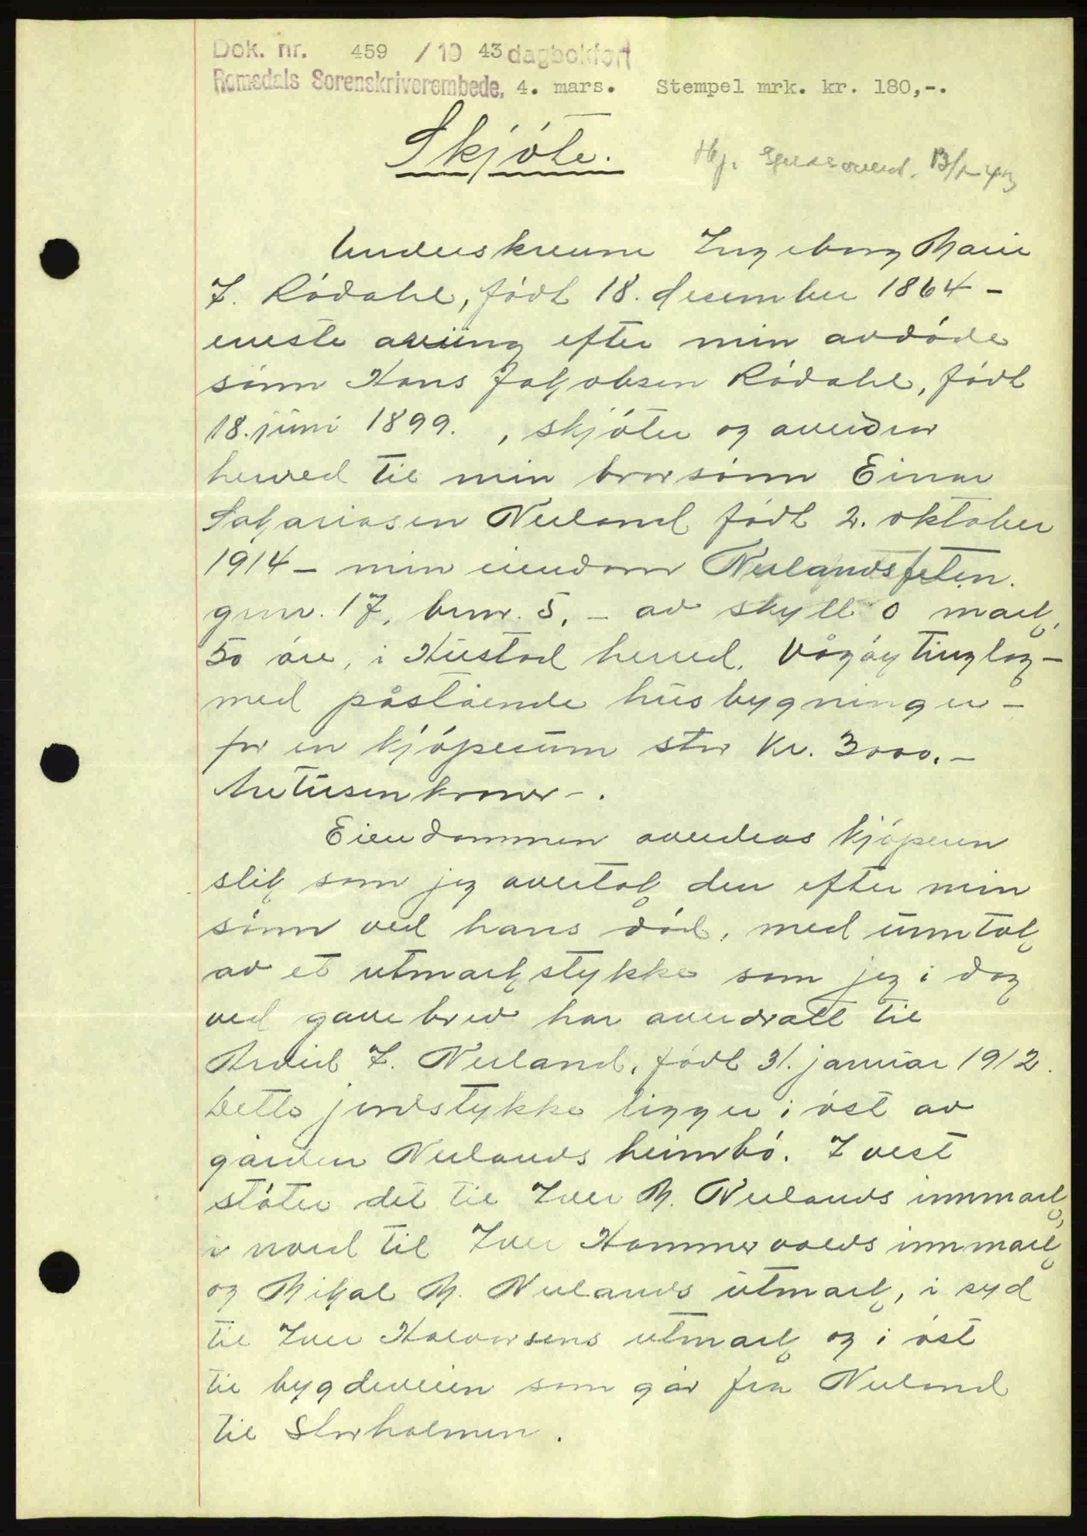 Dok. nr. 459 /19 43 dagbokført
Romsdals Sorenskriverembede, 4. mars. Stempel mrk. kr. 180,-.
Skjöte.
13/2-43
Underskrevne Ingeborg Marie
J. Rödahl, födt 18. desember 1864 -
eneste arving efter min avdöde
sönn Hans Jakobsen Rödahl, födt
18. juni 1899. , skjöter og averdrar
herved til min brorsönn Einar
Sakariasen Nerland födt 2. oktober
1914 - min eiendom Nerlandsfeten.
gnr. 17, bnr. 5, - av skyll 0 mark,
50 öre, i Hustad herred. Vågöy tinglag -
med påstående husbygninger -
for en kjöpesum stor kr. 3000.-
tretusen kroner -.
Eiendommen averdras kjöperen
slik som jeg overtok den efter min
sönn ved hans död, med unntak
av et utmarkstykke som jeg i dag
ved gavebrev har averdratt til
Arvid J. Nerland, födt 31. januar 1912.
Dette jordstykke ligger i öst av
gården Nerlands heimbö. I vest
stöter det til Iver M. Nerlands innmark,
i nord til Iver Hammervolds innmark
og Mikal M. Nerlands utmark, i syd
til Iver Halvorsens utmark og i öst
til bygdeveien som går fra Nerland
til Storholmen.